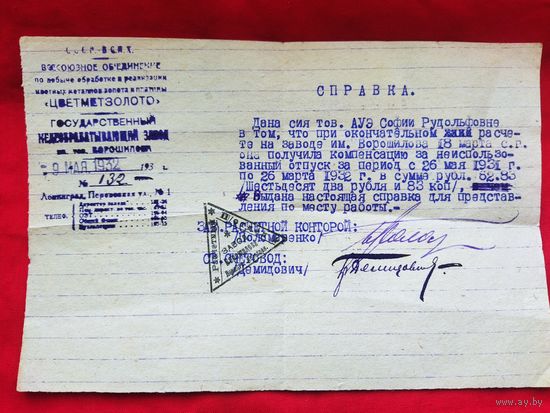 С.С.С.Р. В.С.Н.Х.
ВСЕСОЮЗНОЕ ОБ'ЕДИНЕНИЕ
по добыче обработке и реализации
цветных металлов золота и платины
«ЦВЕТМЕТЗОЛОТО»
ГОСУДАРСТВЕННЫЙ
МЕДЕОБРАБАТЫВАЮЩИЙ ЗАВОД
им. тов. ВОРОШИЛОВА
9 МАЯ 1932 193 г.
№ 132
Ленинград, № 1
ТЕЛЕФ.
СПРАВКА.
Дана сия тов. АУЭ Софии Рудольфовне
в том, что при окончательном расче-
те на заводе им. Ворошилова 18 марта с.г.
она получила компенсацию за неиспользо-
ванный отпуск за период с 26 мая 1931 г.
по 26 марта 1932 г. в сумме рубл. 62.83
/Шестьдесят два рубля и 83 коп/,
Выдана настоящая справка для представ-
ления по месту работы.
ЗАВ. РАСЧЕТНОЙ КОНТОРОЙ:
СЧЕТОВОД:
Демидович/